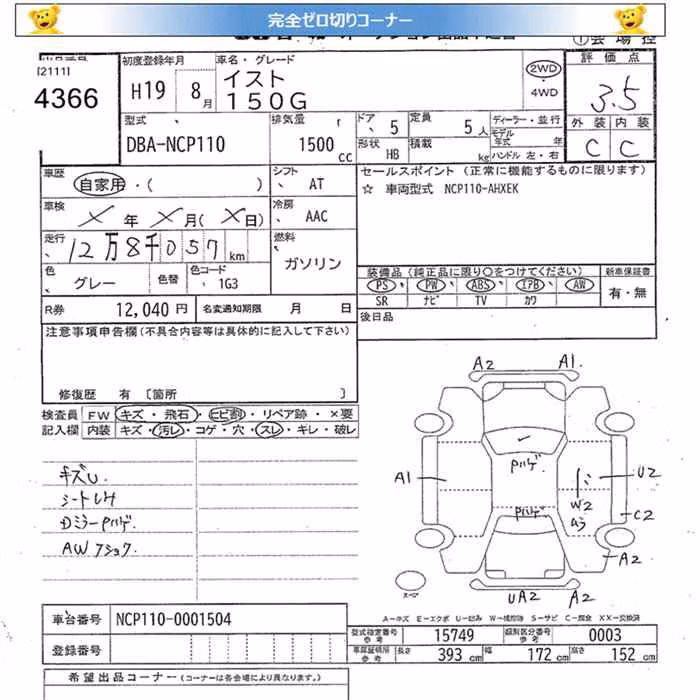 完全ゼロ切りコーナー
[2111]
4366
初度登録年月
H19 8月
車名・グレード
イスト
150G
2WD
・
4WD
評価点
3.5
外装 内装
C C
型式
DBA-NCP110
排気量
1500 cc
ドア 5
定員 5人
形状 HB
積載 kg
ディーラー・並行
モデル年式 年
ハンドル 左・右
車歴
自家用・( )
シフト AT
セールスポイント (正常に機能するものに限ります)
☆ 車両型式 NCP110-AHXEK
車検 X年 X月(X日)
冷房 AAC
走行 12万8千057km
燃料
ガソリン
色 グレー
色替
色コード 1G3
装備品(純正品に限り○をつけてください)
新車保証書
PS・PW・ABS・エアB・AW
SR ナビ TV カワ
有・無
R券 12,040円
名変通知期限 月 日
後日品
注意事項申告欄(不具合内容等は具体的に記入して下さい)
修復歴 有 〔箇所 〕
検査員 FW キズ・飛石・ヒビ割・リペア跡・×要
記入欄 内装 キズ・汚レ・コゲ・穴・スレ・キレ・破レ
キズU
シートレ
DミラーPハゲ
AW
A2 A1
Pハゲ
A1
U2
W2
Pハゲ
C2
A2
UA2 A2
A－キズ E－エクボ U－凹み
車台番号 NCP110-0001504
登録番号
型式指定番号 参考 15749
類別区分番号 参考 0003
長さ 393 cm 幅 172 cm 高さ 152 cm
希望出品コーナー(コーナーは各会場により異なります。)